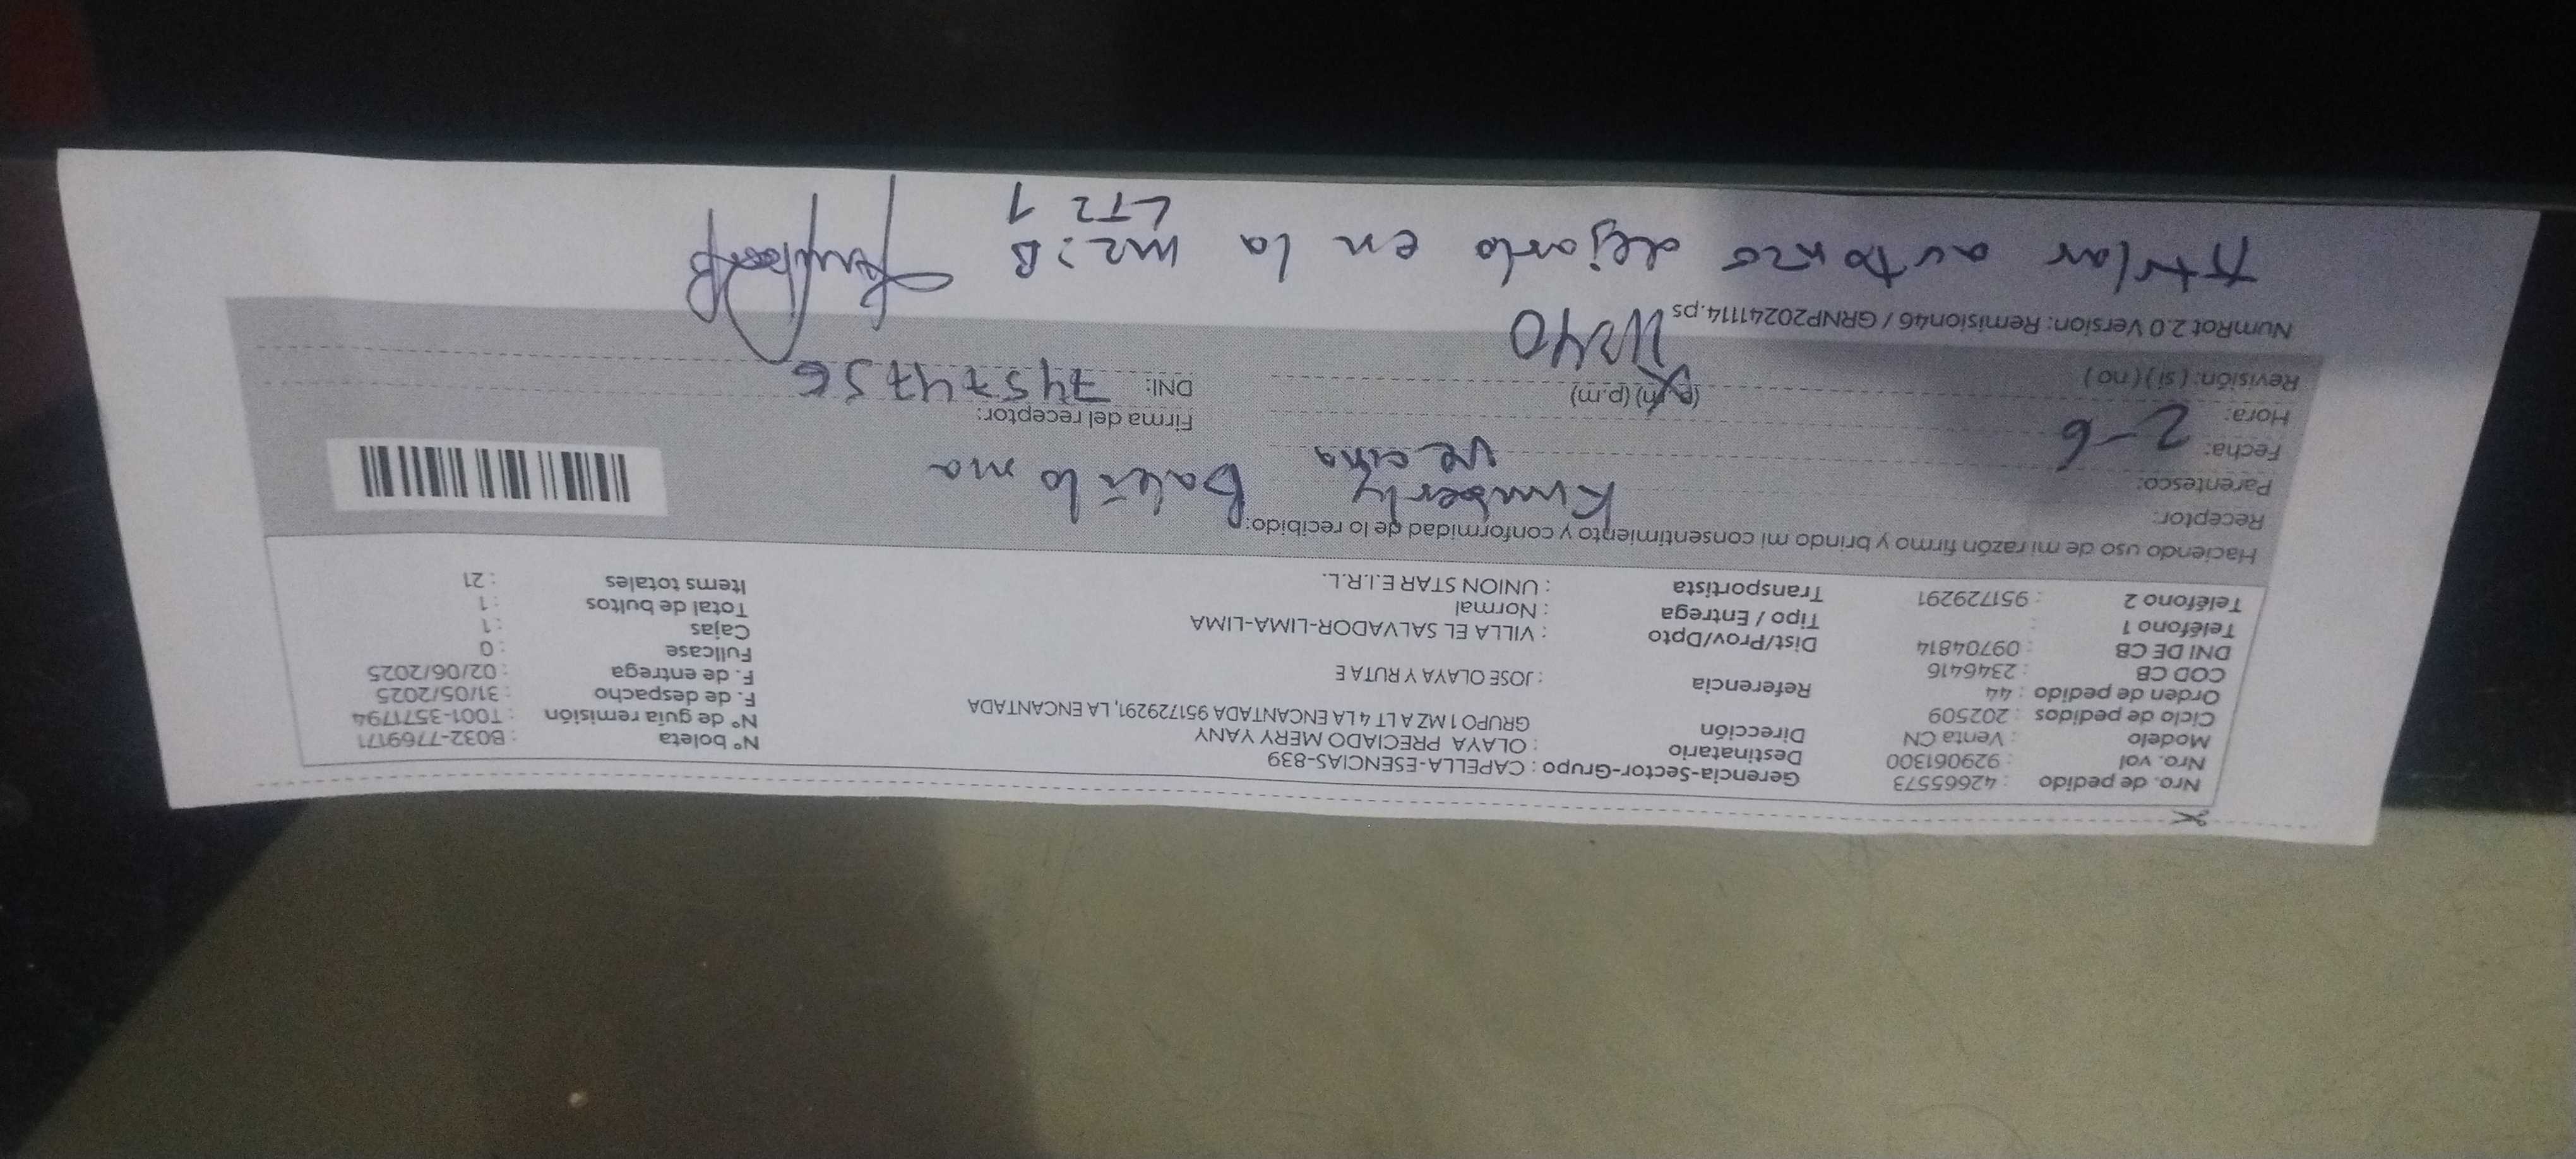 Nro. de pedido : 42665573
Nro. vol : 929061300
Modelo : Venta CN
Ciclo de pedidos : 202509
Orden de pedido : 44
COD CB : 2346416
DNI DE CB : 09704814
Teléfono 1 :
Teléfono 2 : 951729291
Gerencia-Sector-Grupo : CAPELLA-ESENCIAS-839
Destinatario : OLAYA PRECIADO MERY YANY
Dirección GRUPO 1 MZ A LT 4 LA ENCANTADA 951729291, LA ENCANTADA
Referencia : JOSE OLAYA Y RUTA E
Dist/Prov/Dpto : VILLA EL SALVADOR-LIMA-LIMA
Tipo / Entrega : Normal
Transportista : UNION STAR E.I.R.L.
N° boleta : B032-7769171
N° de guía remisión : T001-3571794
F. de despacho : 31/05/2025
F. de entrega : 02/06/2025
Fullcase : 0
Cajas : 1
Total de bultos : 1
Items totales : 21
Haciendo uso de mi razón firmo y brindo mi consentimiento y conformidad de lo recibido:
Receptor: Kimberly
Parentesco: vecina
Fecha: 2-6
Hora: (p.m) 11:40
Revisión: ( si ) ( no )
Firma del receptor:
DNI: 74574756
NumRot 2.0 Version: Remision46 / GRNP20241114.ps
Titular autorizo dejarlo en la mz: B
LTZ 1